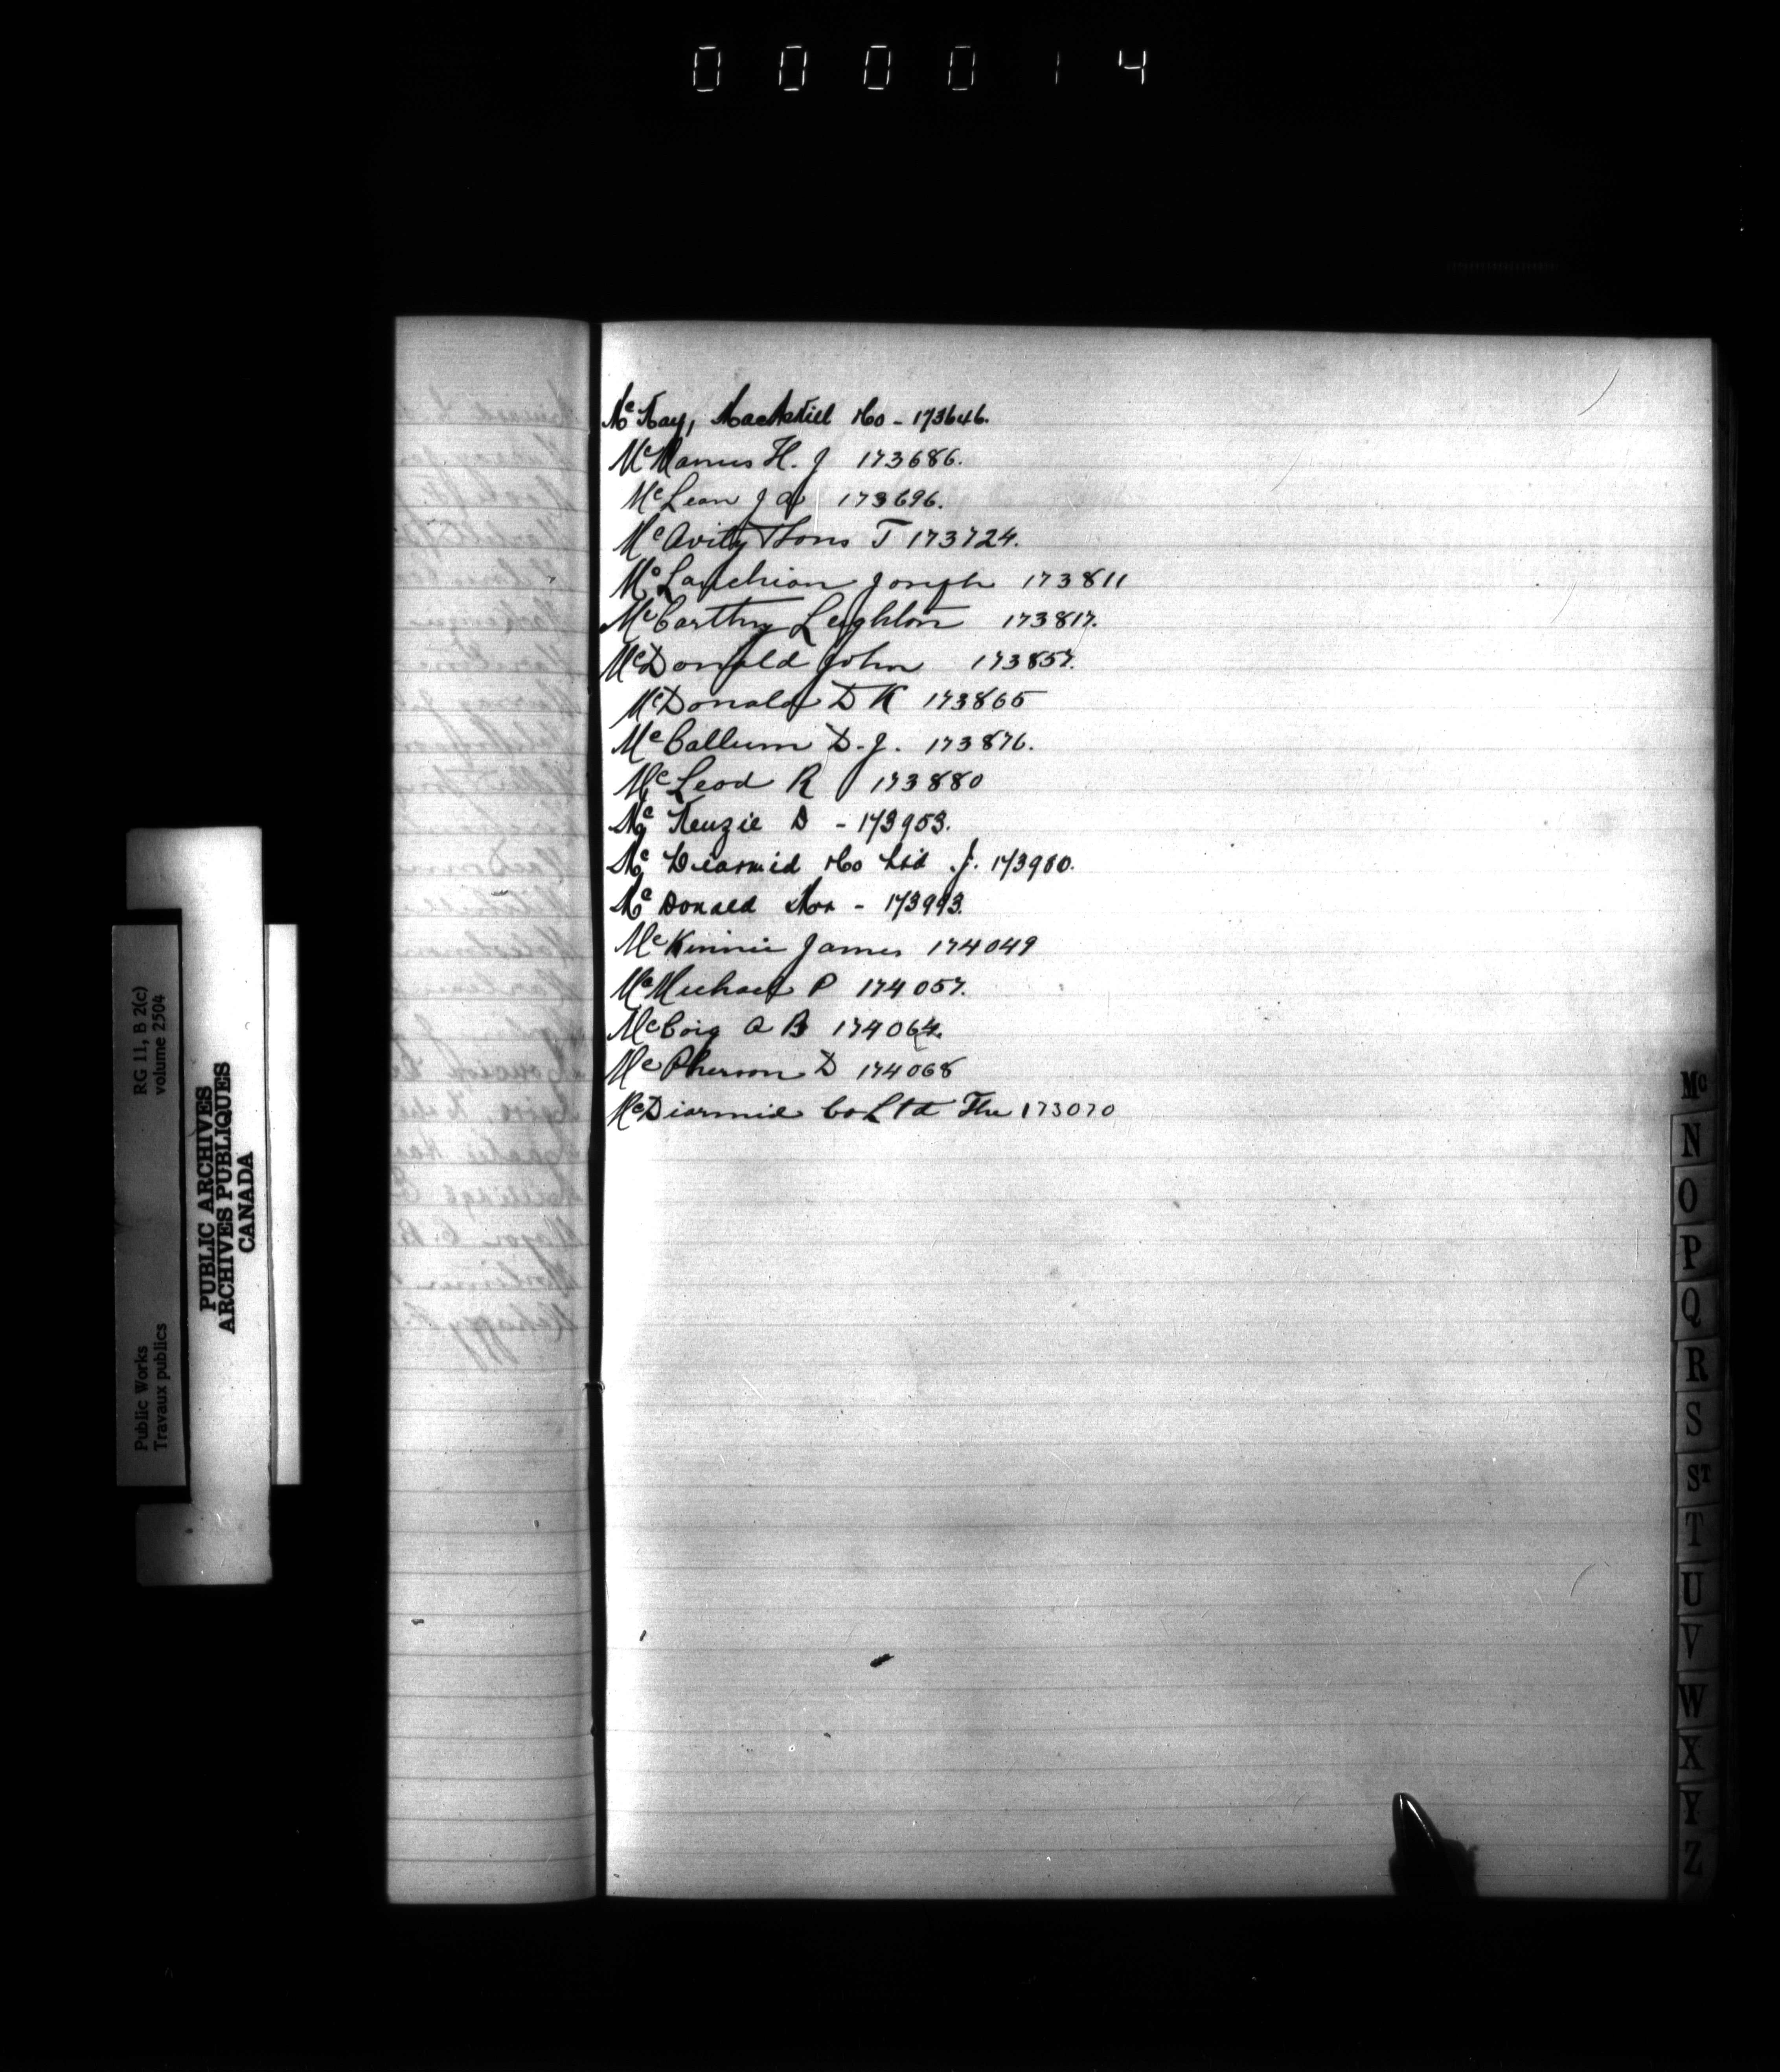 000014
McKay, MacNeill Co - 173646.
McManus H. J 173686.
McLean J A 173696.
McAvity & Sons T 173724.
McLauchlan Joseph 173811
McCarthy Leighton 173817.
McDonald John 173857.
McDonald D K 173865
McCallum D. J. 173876.
McLeod R 173880
McKenzie D - 173953.
McDiarmid Co Ltd J. 173980.
McDonald - 173993.
McKinnie James 174049
McMichael P 174057.
McCoig A B 174064.
McPherson D 174068
McDiarmid Co Ltd The 173070
Mc
N
O
P
Q
R
S
ST
T
U
V
W
X
Y
Z
RG 11, B 2(c)
volume 2504
Public Works
Travaux publics
PUBLIC ARCHIVES
ARCHIVES PUBLIQUES
CANADA